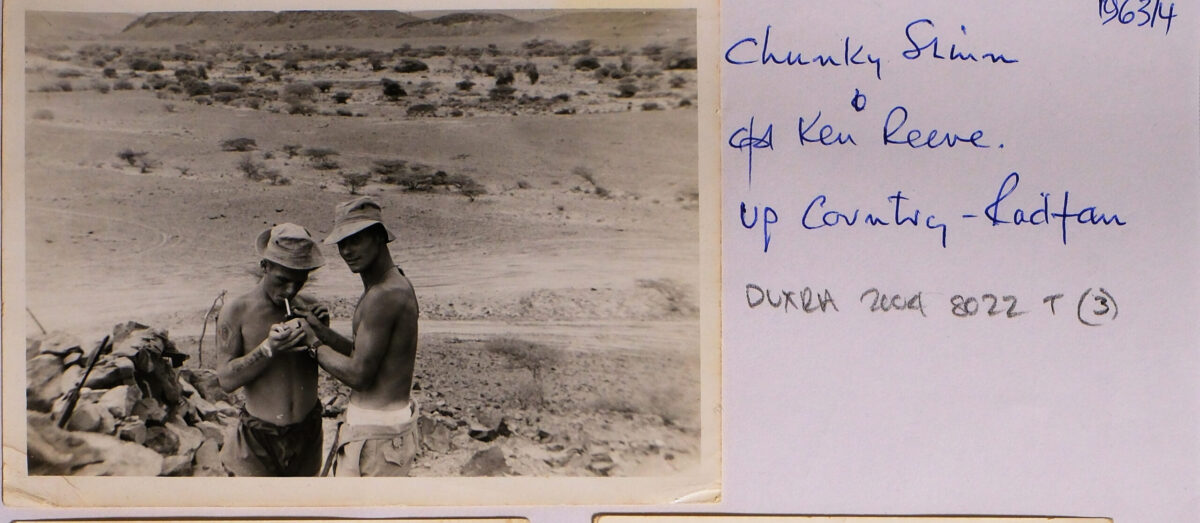 1963/4
Chunky Shinn
Ken Reeve.
up Country - Radfan
DUXRA 2004 8022 T (3)